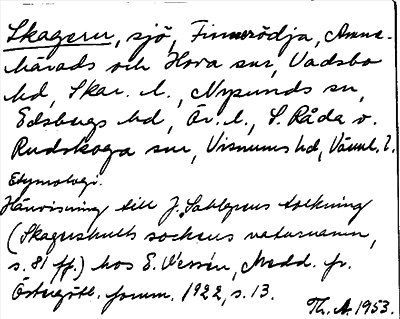 Skagern, sjö, Finnerödja, Amne-
härads och Hova snr, Vadsbo
hd, Skar. l., Nysunds sn,
Edsbergs hd, Ör. l., S. Råda o.
Rudskoga snr, Visnums hd, Värml. l.
Etymologi.
Hänvisning till J. Sahlgrens tolkning
(Skagershults sockens naturnamn,
s. 81 ff.) hos E. Wessén, Medd. fr.
Östergötl. fornm. 1922, s. 13.
Th. A. 1953.